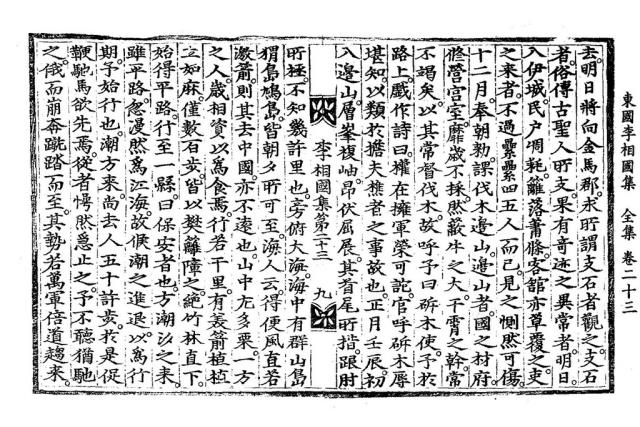 東國李相國集 全集 卷二十三
去。明日將向金馬郡。求所謂支石者觀之。支石
者。俗傳古聖人所支。果有奇迹之異常者。明日
入伊城。民戶凋耗。籬落蕭條。客館亦草覆之。吏
之來者。不過纍纍四五人而已。見之惻然可傷。
十二月。奉朝勑課伐木邊山。邊山者。國之材府。
修營宮室。靡歲不採。然蔽牛之大。干霄之幹。常
不竭矣。以其常督伐木。故呼予曰斫木使。予於
路上。戲作詩曰。權在擁軍榮可詑。官呼斫木辱
堪知。以類於擔夫樵者之事故也。正月壬辰。初
入邊山。層峯複岫。昂伏屈展。其首尾所措。跟肘
李相國集第二十三 九
所極。不知幾許里也。旁俯大海。海中有群山島
猬島鳩島。皆朝夕所可至。海人云。得便風直若
激箭。則其去中國亦不遠也。山中尤多栗。一方
之人。歲相資以爲食焉。行若干里。有美箭植植
立如麻。僅數百步。皆以樊籬障之。絶竹林直下。
始得平路。行至一縣。曰保安者也。方潮汐之來。
雖平路。忽漫然爲江海。故候潮之進退以爲行
期。予始行也。潮方來。尚去人五十許步。於是促
鞭馳馬欲先焉。從者愕然急止之。予不聽猶馳
之。俄而崩奔跳踏而至。其勢若萬軍倍道趨來。